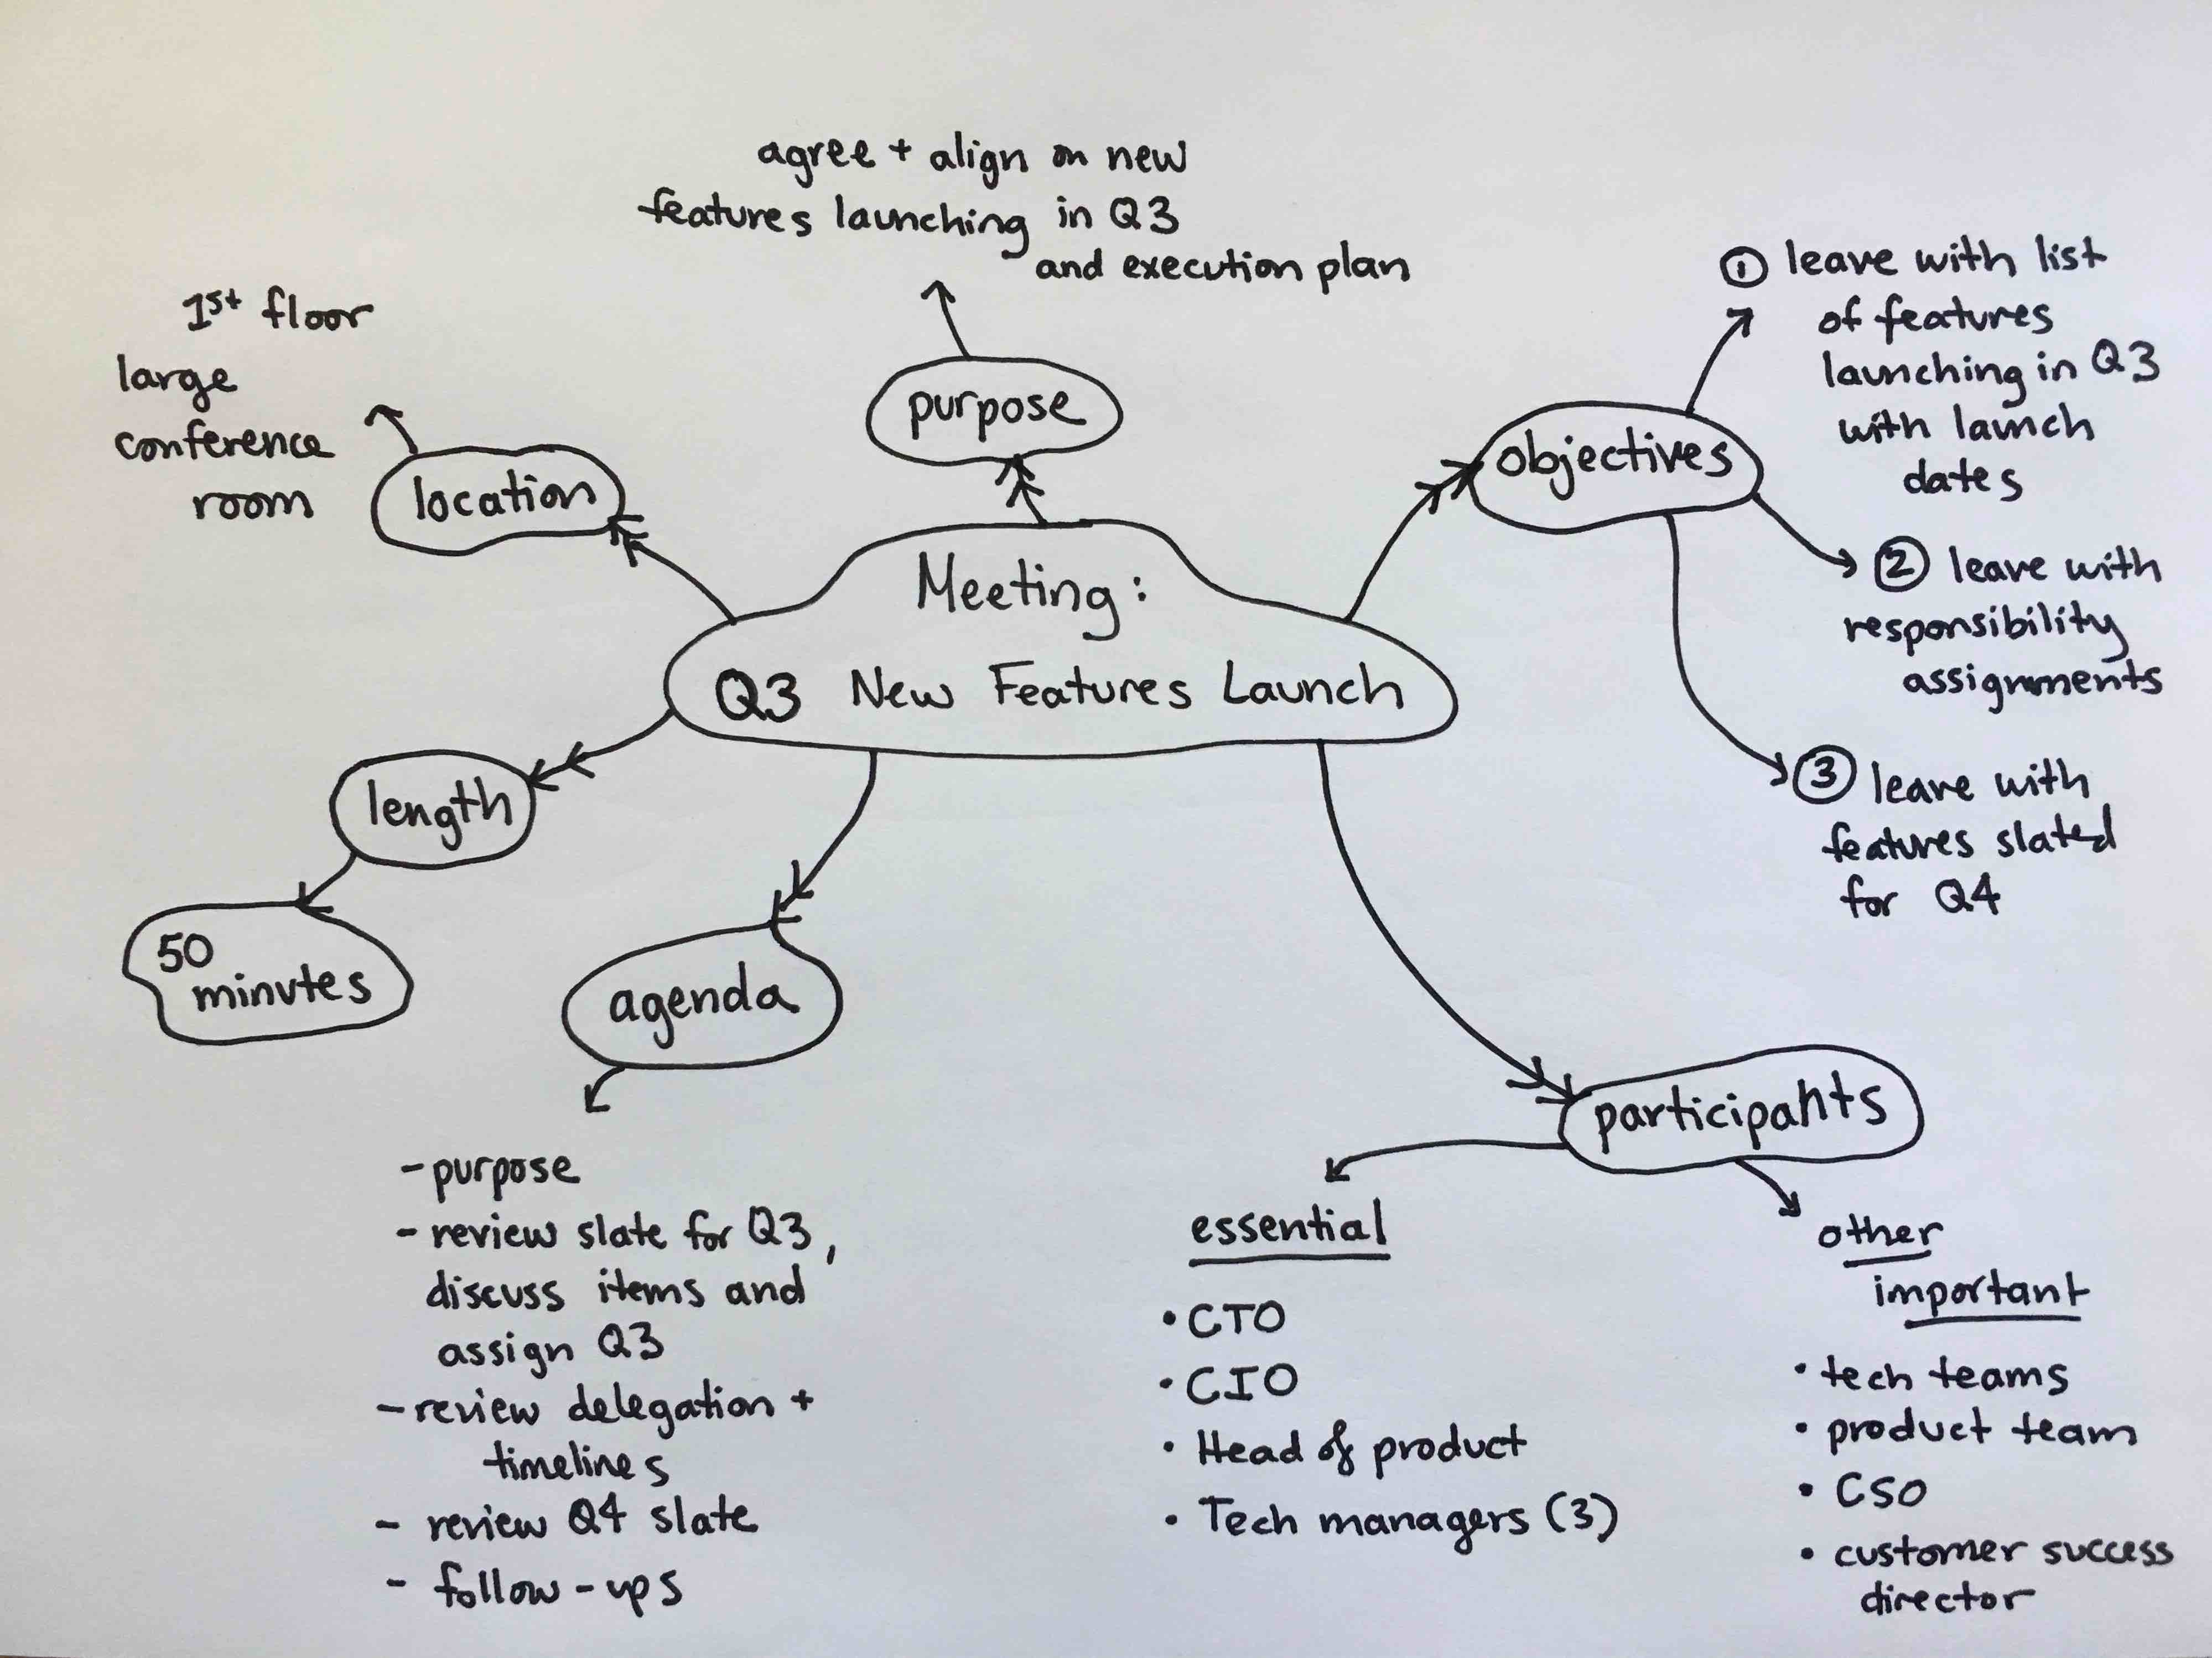 agree + align on new
features launching in Q3
and execution plan
purpose
1st floor
large
conference
room
location
Meeting:
Q3 New Features Launch
objectives
① leave with list
of features
launching in Q3
with launch
dates
② leave with
responsibility
assignments
③ leave with
features slated
for Q4
length
50
minutes
agenda
- purpose
- review slate for Q3,
discuss items and
assign Q3
- review delegation +
timelines
- review Q4 slate
- follow-ups
participants
essential
• CTO
• CIO
• Head of product
• Tech managers (3)
other
important
• tech teams
• product team
• CSO
• customer success
director